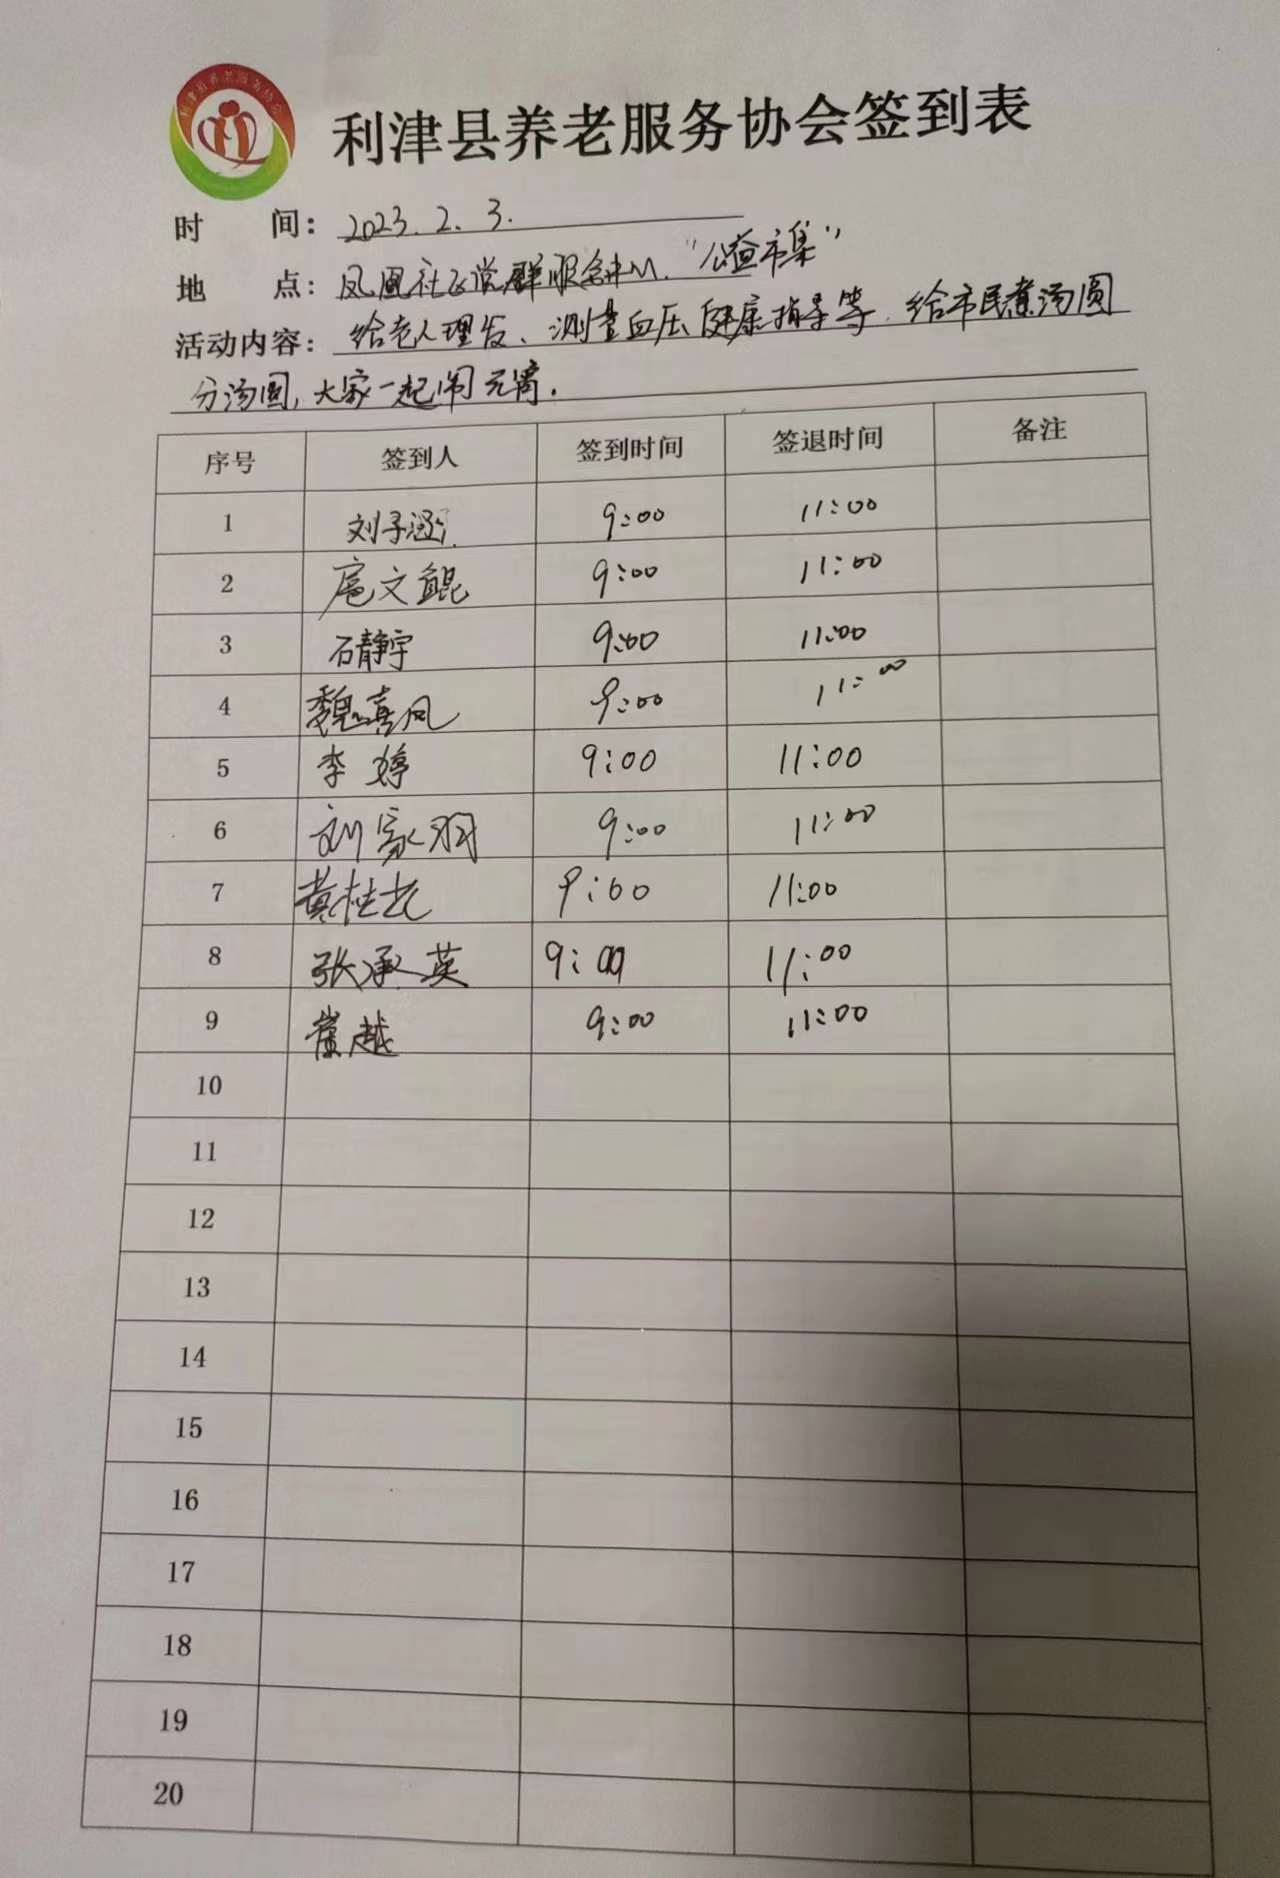 利津县养老服务协会
利津县养老服务协会签到表
时 间: 2023.2.3.
地 点: 凤凰社区党群服务中心.“公益市集”
活动内容: 给老人理发、测量血压 健康指导等.给市民煮汤圆
分汤圆,大家一起闹元宵.
序号 签到人 签到时间 签退时间 备注
1 刘子涵 9:00 11:00
2 扈文鲲 9:00 11:00
3 石静宇 9:00 11:00
4 魏真凤 9:00 11:00
5 李婷 9:00 11:00
6 刘家羽 9:00 11:00
7 黄桂 9:00 11:00
8 张承英 9:00 11:00
9 崔越 9:00 11:00
10
11
12
13
14
15
16
17
18
19
20